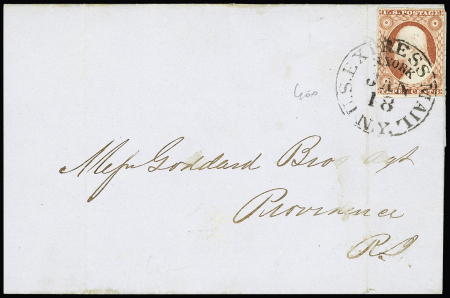 U.S. POSTAGE
U.S. EXPRESS MAIL N.Y.
N.YORK
JAN
18
400
Messrs Goddard Bros
Providence
R.I.